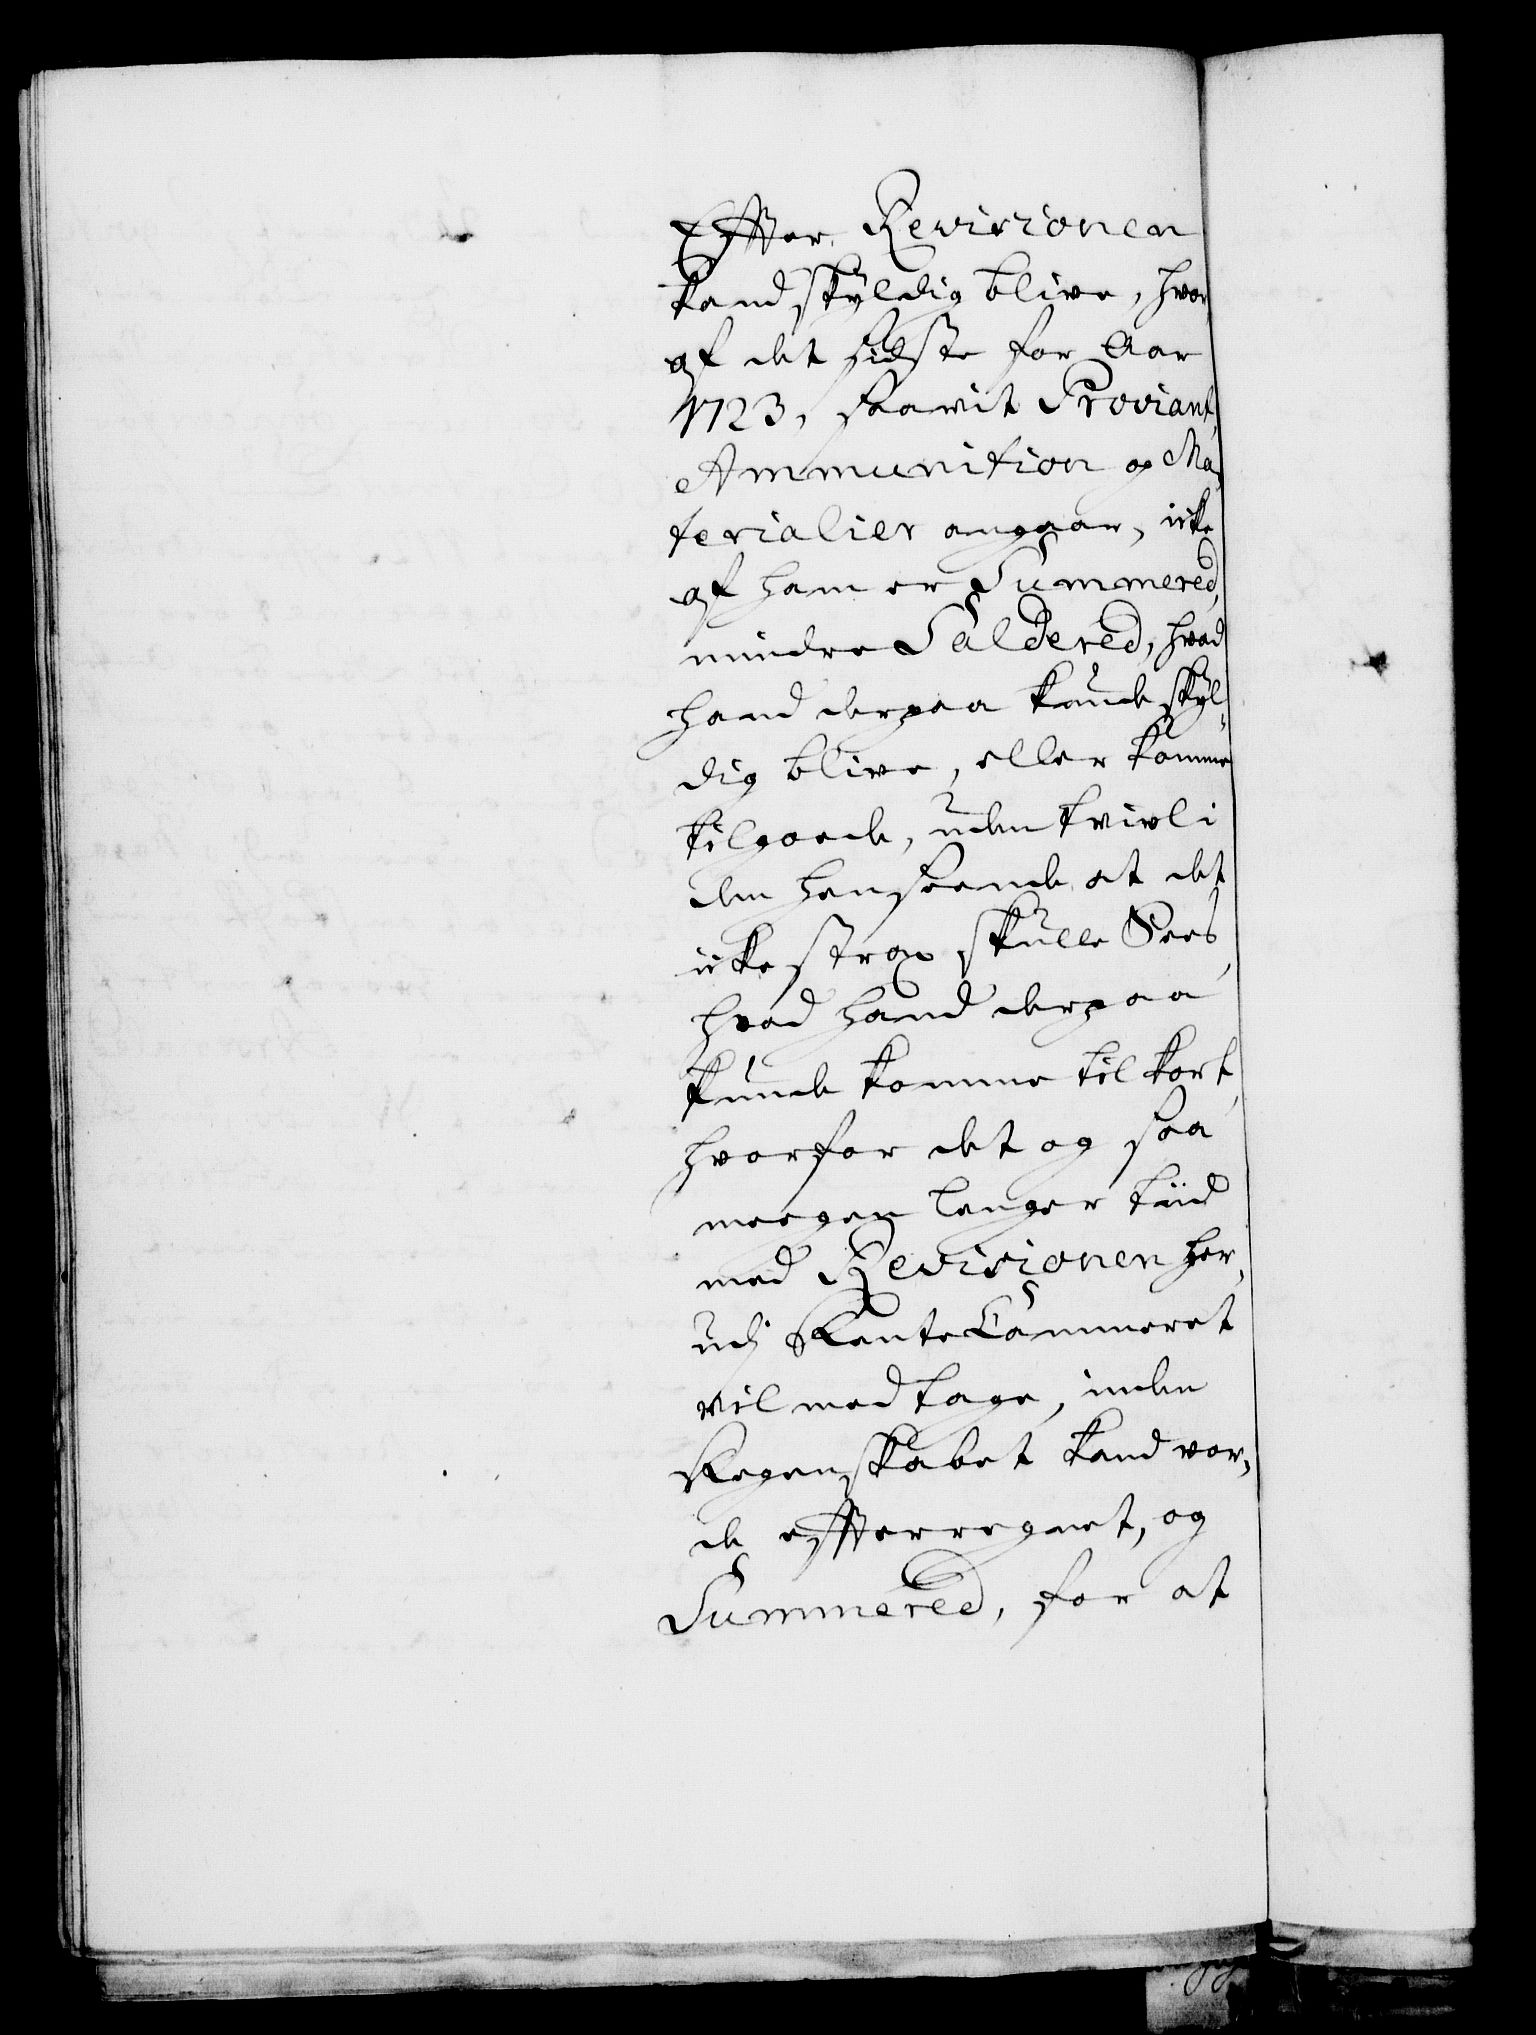 Effter Revisionen
kand skyldig blive, hvor
af det sidste for Aar
1723, saavit Proviant,
Ammunition og Ma,
terialier angaar, icke
af ham er Summered,
mindre Saldered, hvad
hand derpaa kunde skyl-
dig blive, eller komme
tilgoede, uden tvivl i
den henseende at det
icke strax skulle Sees,
hvad hand derpaa
kunde komme til kort,
hvorfor det og saa
meegen lenger tiid
med Revisionen her,
udj Rente Cammeret
vil medtage, inden
Regenskabet kand vor,
de effterregnet, og
Summered, for at